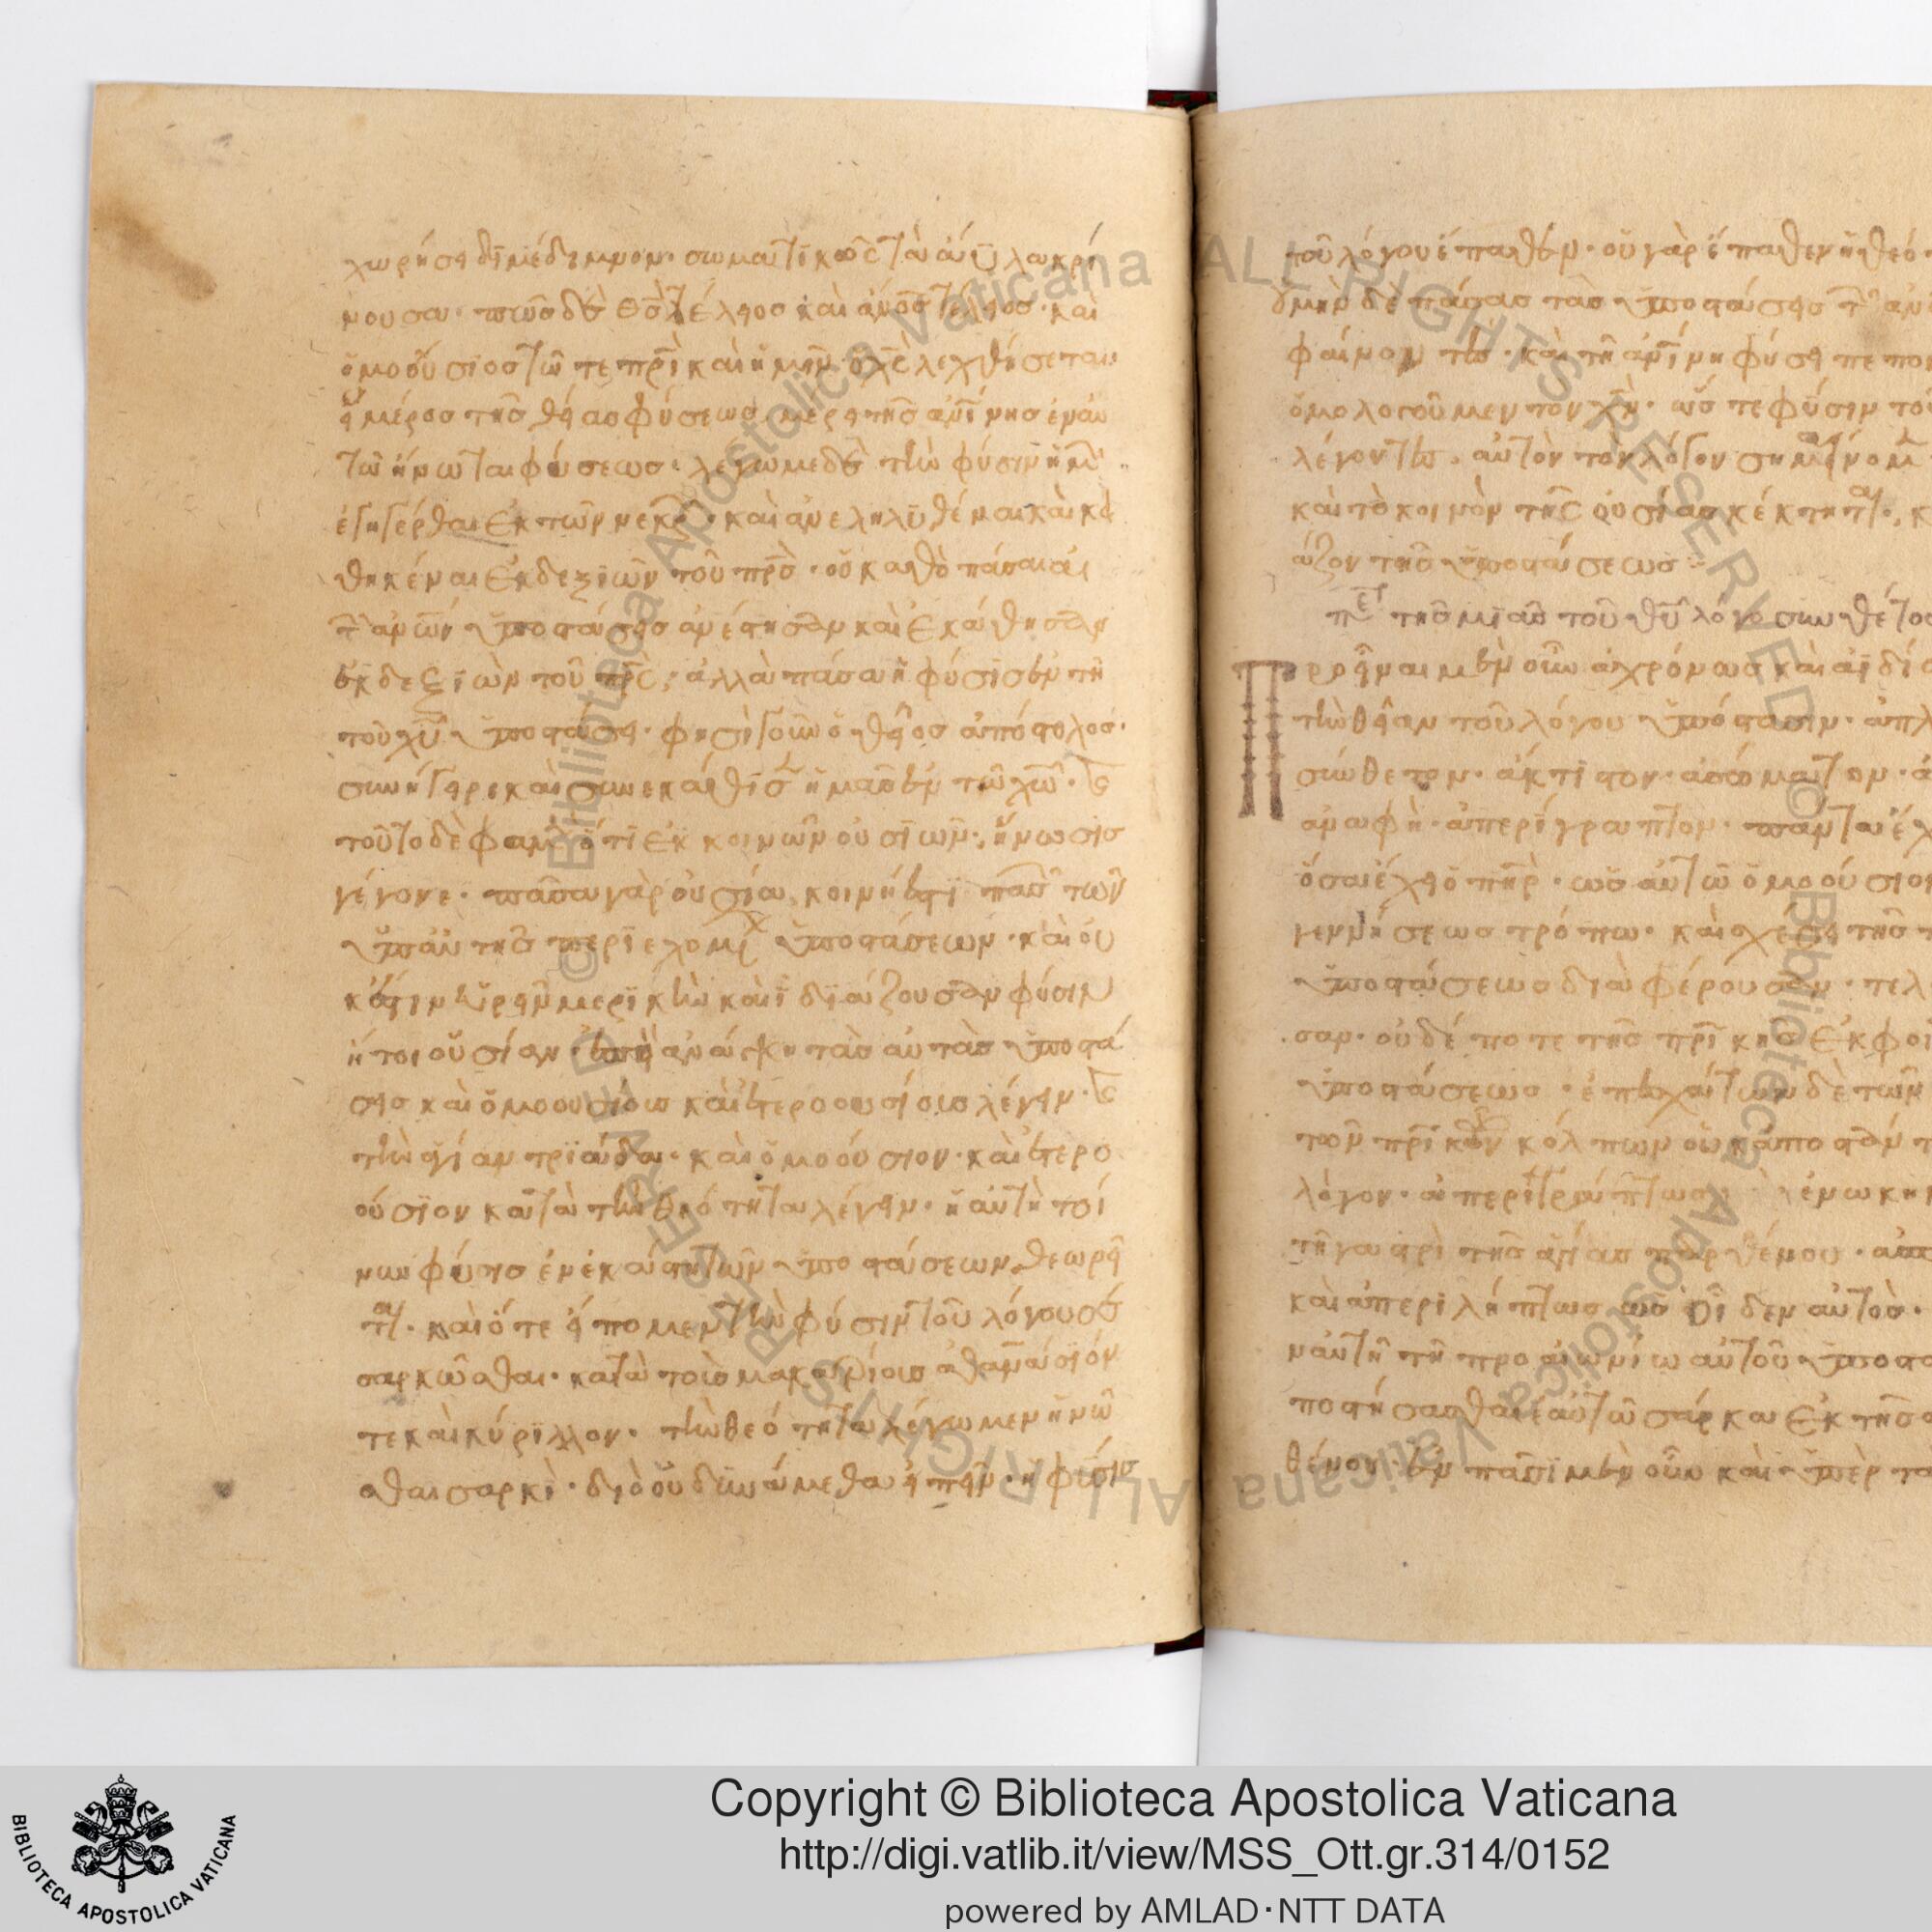 χωρήσει δὶ μέδιμνον. σωματικῶς τὰ ἄϋλα κρί
νουσα. πῶς δὲ θς τέλειος καὶ ἄνος τέλειος. καὶ
ὁμοούσιος τῶ τε πρὶ καὶ ἡμῖν ὁ χς λεχθήσεται.
εἰ μέρος τῆς θείας φύσεως μέρει τῆς ἀνίνης ἐν αὐ
τῶ ἥνωται φύσεως. λέγωμεν δὲ τὴν φύσιν ἡμῶν
ἐγηγέρθαι ἐκ τῶν νεκρῶν. καὶ ἀνεληλυθέναι καὶ κα
θηκέναι ἐκ δεξιῶν τοῦ πρς. οὐ καθὸ πάσαι αἱ
τῶν ἀνων ὑποστάσεις ἀνέστησαν καὶ ἐκάθησαν
ἐκ δεξιῶν τοῦ πρς. ἀλλὰ πάσα ἡ φύσις ἐν τῆ
τοῦ χυ ὑποστάσει. φησὶ γοῦν ὁ θεῖος ἀπόστολος.
συνήγειρε καὶ συνεκάθισεν ἡμᾶς ἐν τῶ χω. καὶ
τοῦτο δὲ φαμὲν ὅτι ἐκ κοινῶν οὐσιῶν. ἡ ἕνωσις
γέγονε. πᾶσα γὰρ οὐσία κοινή ἐστι πασῶν τῶν
ὑπ' αὐτῆς περιεχομένων ὑποστάσεων. καὶ οὐ
κ ἔστιν εὑρεῖν μερικὴν καὶ ἰδιάζουσαν φύσιν
ἤτοι οὐσίαν. ἐπεὶ ἀνάγκη τὰς αὐτὰς ὑποστά
σεις καὶ ὁμοουσίους καὶ ἑτεροουσίους λέγειν. καὶ
τὴν ἁγίαν τριάδα. καὶ ὁμοούσιον. καὶ ἑτερο
ούσιον κατὰ τὴν θεότητα λέγειν. ἡ αὐτὴ τοί
νυν φύσις ἐν ἑκάστη τῶν ὑποστάσεων θεωρεῖ
ται. καὶ ὅτε εἴπομεν τὴν φύσιν τοῦ λόγου σε
σαρκῶσθαι. κατὰ τοὺς μακαρίους ἀθανάσιόν
τε καὶ κύριλλον. τὴν θεότητα λέγωμεν ἡνῶ
σθαι σαρκὶ. διὸ οὐ δυνάμεθα εἰπεῖν. ἡ φύσις
τοῦ λόγου ἔπαθεν. οὐ γὰρ ἔπαθεν ἡ θεό
μὴν δὲ πάσας τὰς ὑποστάσεις τῶν ἀν
ὁμολογοῦμεν τὸν χν. ὥστε φύσιν τοῦ
λέγοντες. αὐτὸν τὸν λόγον σημαίνομεν
καὶ τὸ κοινὸν τῆς οὐσίας κέκτηται. κ
άζον τῆς ὑποστάσεως
περὶ τῆς μιᾶς τοῦ θυ λόγου συνθέτου
Προεῖναι μὲν οὖν ἀχρόνως καὶ ἀϊδί
τὴν θείαν τοῦ λόγου ὑπόστασιν. ἁπλ
σύνθετον. ἄκτιστον. ἀσώματον. ἀ
ἀναφῆ. ἀπερίγραπτον. πάντα ἔχ
ὅσα ἔχει ὁ πηρ. ὡς αὐτῶ ὁμοούσιον
γεννήσεως τρόπω. καὶ σχέσει τῆς
ὑποστάσεως διαφέρουσαν. τελ
σαν. οὐδέποτε τῆς πρικῆς ἐκφοι
ὑποστάσεως. ἐπ' ἐσχάτων δὲ τῶν
τῶν πρικῶν κόλπων οὐκ ἀποστὰν τ
λόγον. ἀπεριγράπτως ἐνωκην
τῆ γαστρὶ τῆς ἁγίας παρθένου. ἀσπ
καὶ ἀπεριλήπτως ὡς οἶδεν αὐτὸς.
ν αὐτῆ τῆ προαιωνίω αὐτοῦ ὑποστ
ποστήσασθαι ἑαυτῶ σάρκα ἐκ τῆς
θένου. ἐν πᾶσι μὲν οὖν καὶ ὑπὲρ τὰ
© Biblioteca Apostolica Vaticana ALL RIGHTS RESERVED © Biblioteca Apostolica Vaticana ALL RIGHTS RESERVED
BIBLIOTECA APOSTOLICA VATICANA
Copyright © Biblioteca Apostolica Vaticana
http://digi.vatlib.it/view/MSS_Ott.gr.314/0152
powered by AMLAD·NTT DATA